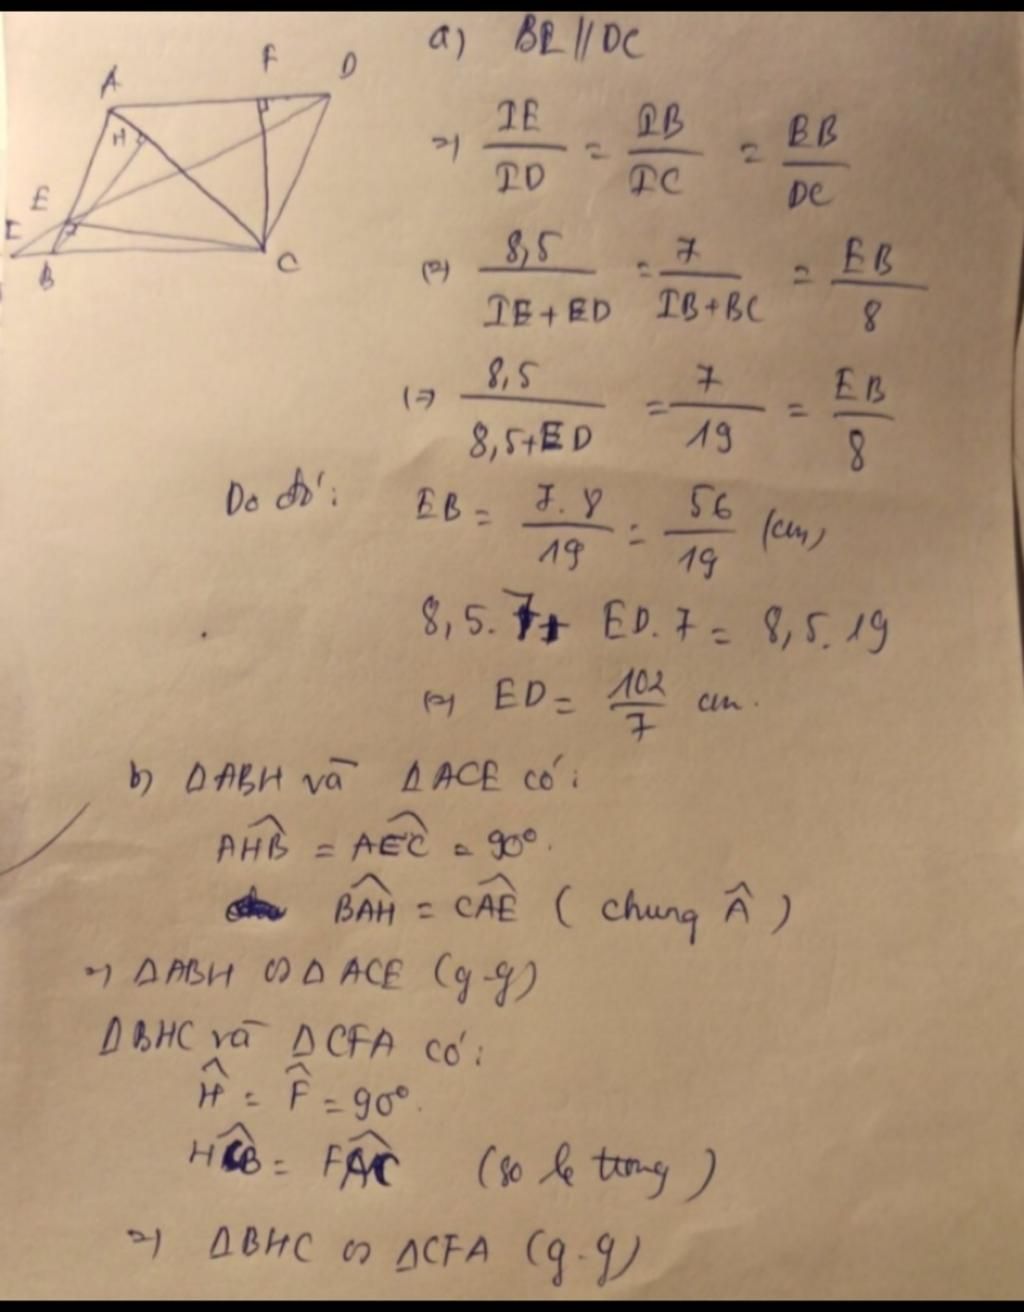 A F D
H
E
I B C
a) BE // DC
=> IE/ID = IB/IC = EB/DC
(=) 8,5/IE+ED = 7/IB+BC = EB/8
(=> 8,5/8,5+ED = 7/19 = EB/8
Do đó: EB = 7.8/19 = 56/19 (cm)
8,5.7 + ED.7 = 8,5.19
(=) ED = 102/7 cm.
b) ΔABH và ΔACE có:
AHB^ = AEC^ = 90°.
BAH^ = CAE^ ( chung Â )
=> ΔABH ∽ ΔACE (g-g)
ΔBHC và ΔCFA có:
Ĥ = F̂ = 90°.
HCB^ = FAC^ (so le trong )
=> ΔBHC ∽ ΔCFA (g-g)